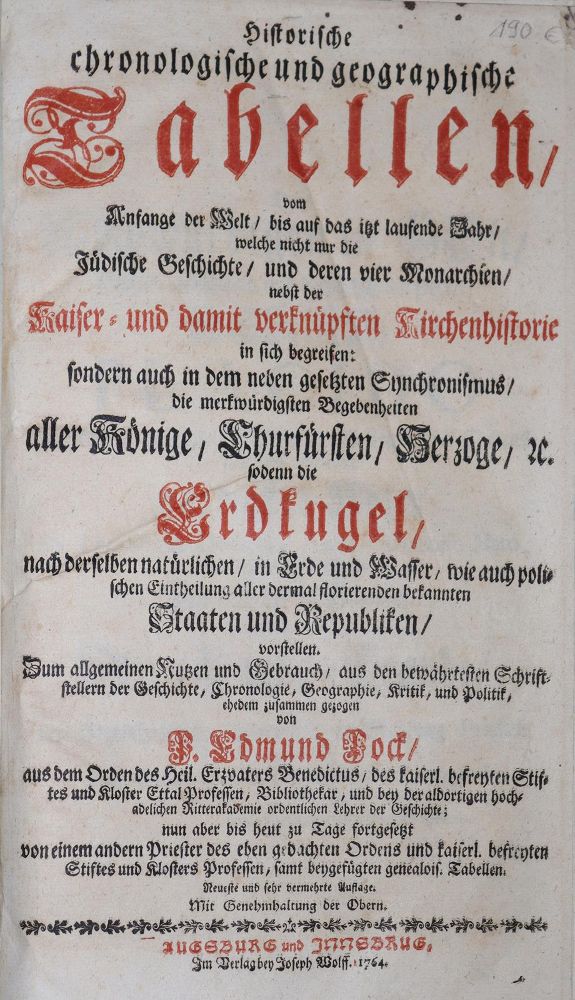 190 €
Historische
chronologische und geographische
Tabellen/
vom
Anfange der Welt/ bis auf das itzt laufende Jahr/
welche nicht nur die
Jüdische Geschichte/ und deren vier Monarchien/
nebst der
Kaiser- und damit verknüpften Kirchenhistorie
in sich begreifen:
sondern auch in dem neben gesetzten Synchronismus/
die merkwürdigsten Begebenheiten
aller Könige, Churfürsten/ Herzoge/ ꝛc.
sodenn die
Erdkugel/
nach derselben natürlichen/ in Erde und Wasser/ wie auch poli-
schen Eintheilung aller dermal florierenden bekannten
Staaten und Republiken/
vorstellen.
Zum allgemeinen Nutzen und Gebrauch/ aus den bewährtesten Schrift-
stellern der Geschichte, Chronologie, Geographie, Kritik, und Politik,
ehedem zusammen gezogen
von
P. Edmund Pock/
aus dem Orden des Heil. Erzvaters Benedictus/ des kaiserl. befreyten Stif-
tes und Kloster Ettal Professen, Bibliothekar, und bey der aldortigen hoch-
adelichen Ritterakademie ordentlichen Lehrer der Geschichte;
nun aber bis heut zu Tage fortgesetzt
von einem andern Priester des eben gedachten Ordens und kaiserl. befreyten
Stiftes und Klosters Professen, samt beygefügten genealois. Tabellen.
Neueste und sehr vermehrte Auflage.
Mit Genehmhaltung der Obern.
AUGSBURG und INNSBRUG,
Im Verlag bey Joseph Wolff. 1764.